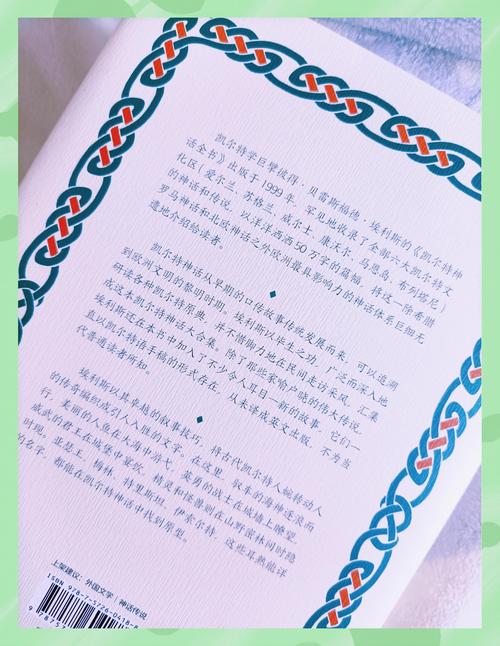 凯尔特学巨擘彼得·贝雷斯福德·埃利斯的《凯尔特神
话全书》出版于1999年，罕见地收录了全部六大凯尔特文
化区（爱尔兰、苏格兰、威尔士、康沃尔、马恩岛、布列塔尼）
的神话和传说，以洋洋洒洒50万字的篇幅，将这一除希腊
罗马神话和北欧神话之外欧洲最具影响力的神话体系巨细无
遗地介绍给读者。
凯尔特神话从早期的口传故事传统发展而来，可以追溯
到欧洲文明的黎明时期。埃利斯以毕生之功，广泛而深入地
研读各种凯尔特原典，并不惜脚力地在民间走访采风，汇集
成这本凯尔特神话大合集。除了那些家喻户晓的伟大传说，
埃利斯还在本书中加入了不少令人耳目一新的故事，它们一
直以凯尔特语手稿的形式存在，从未译成英文出版，不为当
代普通读者所知。
埃利斯以其卓越的叙事技巧，将古代凯尔特人婉转动人
的传奇编织成引人入胜的文字。在这里，驭车的海神逐浪而
行，美丽的人鱼在大海中洄弋，英勇的战士在城墙上瞭望，
威武的君王在城堡中宴饮，精灵和怪兽则在山野密林间时隐
时现。亚瑟王、梅林、特里斯坦、伊索尔特，这些耳熟能详
的名字，都能在凯尔特神话中找到原型。
上架建议：外国文学｜神话传说
ISBN 978-7-5726-0418-8